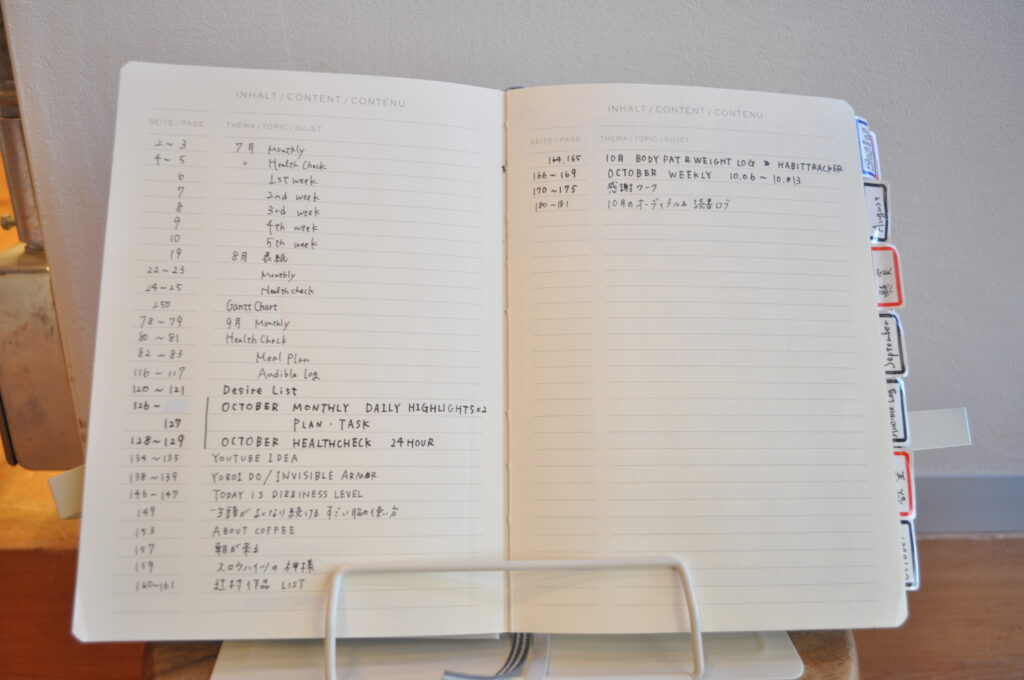 INHALT / CONTENT / CONTENU
SEITE / PAGE THEMA / TOPIC / SUJET
2~3 7月 Monthly
4~5 " Health Check
6 1st week
7 2nd week
8 3rd week
9 4th week
10 5th week
19 8月 表紙
22~23 Monthly
24~25 Health check
250 Gantt Chart
78~79 9月 Monthly
80~81 Health Check
82~83 Meal Plan
116~117 Audible Log
120~121 Desire List
126~ OCTOBER MONTHLY DAILY HIGHLIGHTS×2
127 PLAN・TASK
128~129 OCTOBER HEALTHCHECK 24HOUR
134~135 YOUTUBE IDEA
138~139 YOROI DO / INVISIBLE ARMOR
146~147 TODAY IS DIZZINESS LEVEL
149 一生頭がよくなり続ける すごい脳の使い方
153 ABOUT COFFEE
157 朝が来る
159 スロウハイツの神様
160~161 辻村作品 LIST
INHALT / CONTENT / CONTENU
SEITE / PAGE THEMA / TOPIC / SUJET
164,165 10月 BODY FAT & WEIGHT LOG & HABITTRACKER
166~169 OCTOBER WEEKLY 10.06~10.013
170~175 感謝ワーク
180~181 10月のオーディブル& 読書ログ
August
September
Audible Log
October